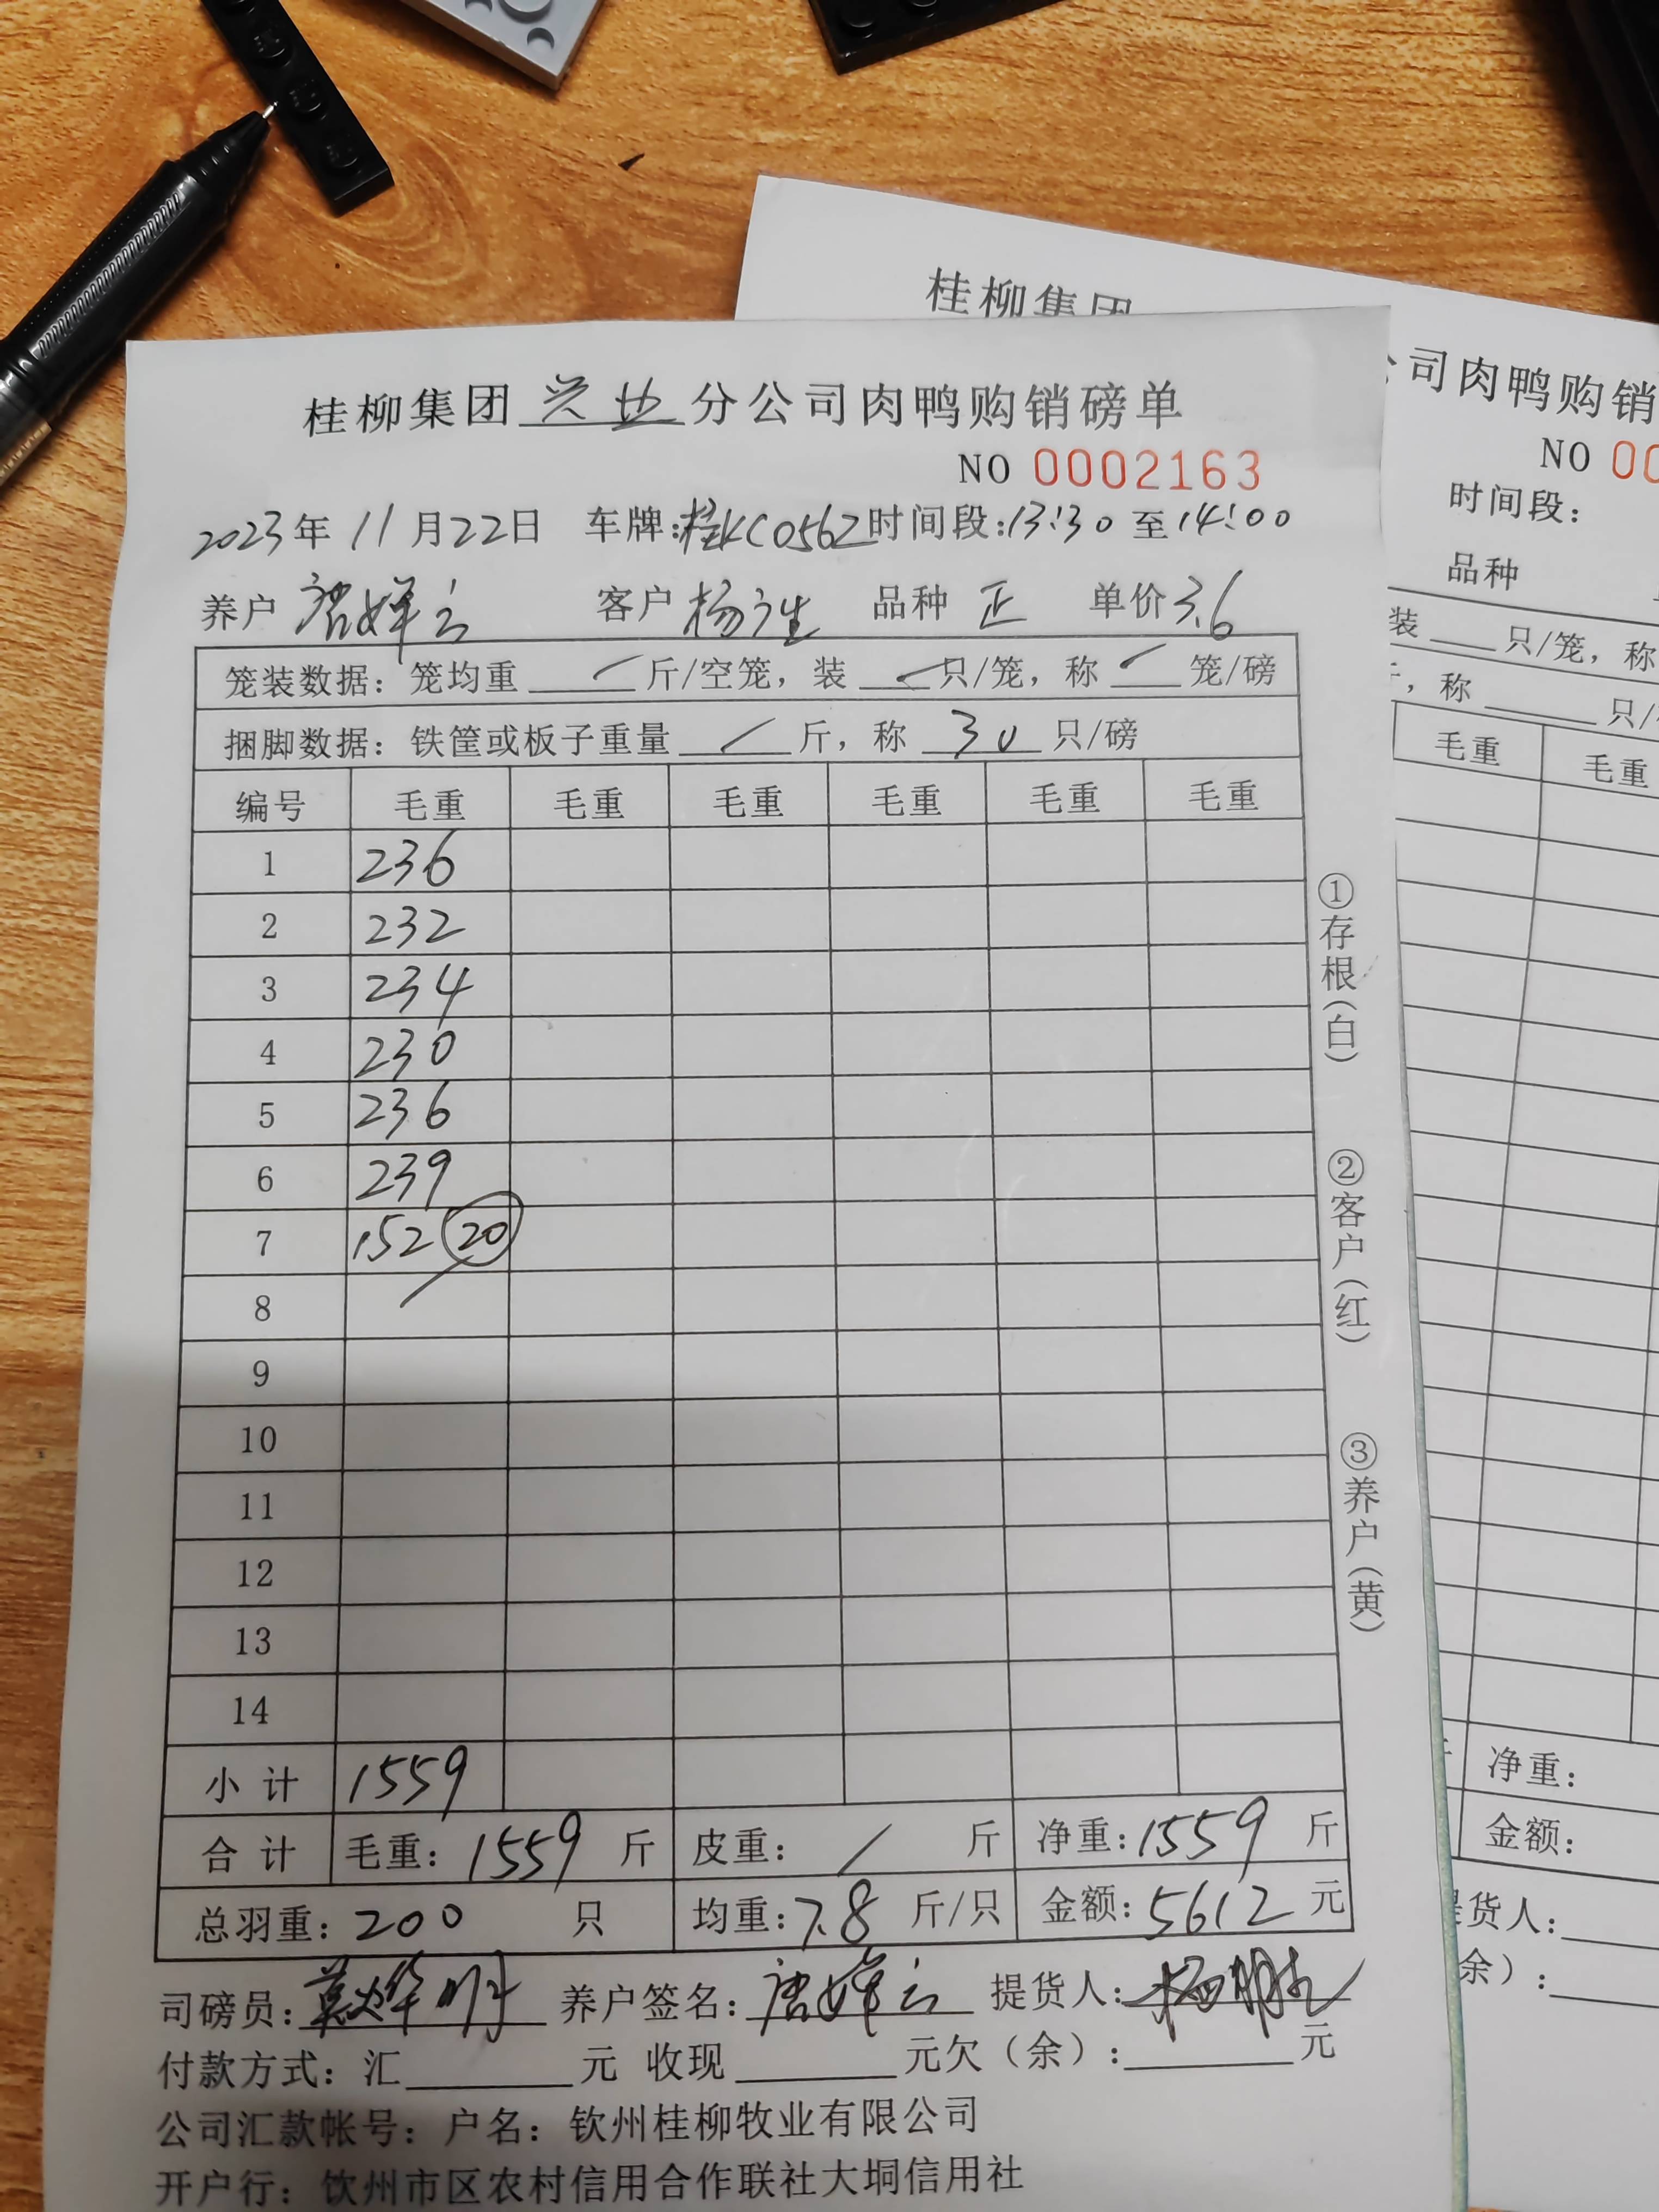 桂柳集团
公司肉鸭购销
NO 00
时间段:
品种
装 只/笼,称
,称 只/
毛重 毛重
净重:
金额:
提货人:
余):
桂柳集团兴业分公司肉鸭购销磅单
NO 0002163
2023年 11月22日 车牌:桂KC0562 时间段:13:30 至 14:00
养户 唐 云 客户 杨生 品种 正 单价 3.6
笼装数据: 笼均重 / 斤/空笼,装 / 只/笼,称 / 笼/磅
捆脚数据: 铁筐或板子重量 / 斤,称 30 只/磅
编号 毛重 毛重 毛重 毛重 毛重 毛重
1 236
2 232
3 234
4 230
5 236
6 239
7 152 20
8
9
10
11
12
13
14
小 计 1559
合 计 毛重: 1559 斤 皮重: / 斤 净重: 1559 斤
总羽重: 200 只 均重: 7.8 斤/只 金额: 5612 元
司磅员: 养户签名: 唐 云 提货人: 杨
付款方式: 汇 元 收现 元欠(余): 元
公司汇款帐号: 户名: 钦州桂柳牧业有限公司
开户行: 钦州市区农村信用合作联社大垌信用社
①存根(白)
②客户(红)
③养户(黄)